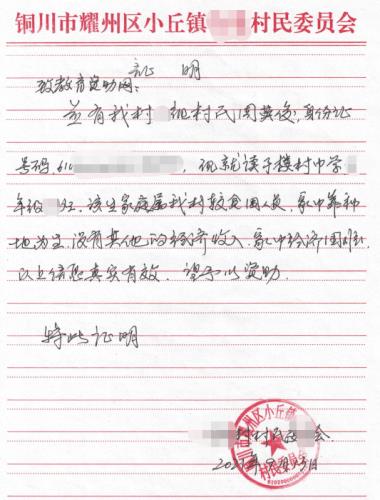 铜川市耀州区小丘镇 村民委员会
证 明
致教育资助网:
兹有我村 组村民周英俊,身份证
号码,610 ,现就读于楼村中学
年级 班,该生家庭属我村较贫困人员,家中靠种
地为生,没有其他的经济收入,家中经济困难,
以上信息真实有效,望予以资助.
特此证明
村村民委 会
2021年9月 日
铜川市耀州区小丘镇
村民委员会